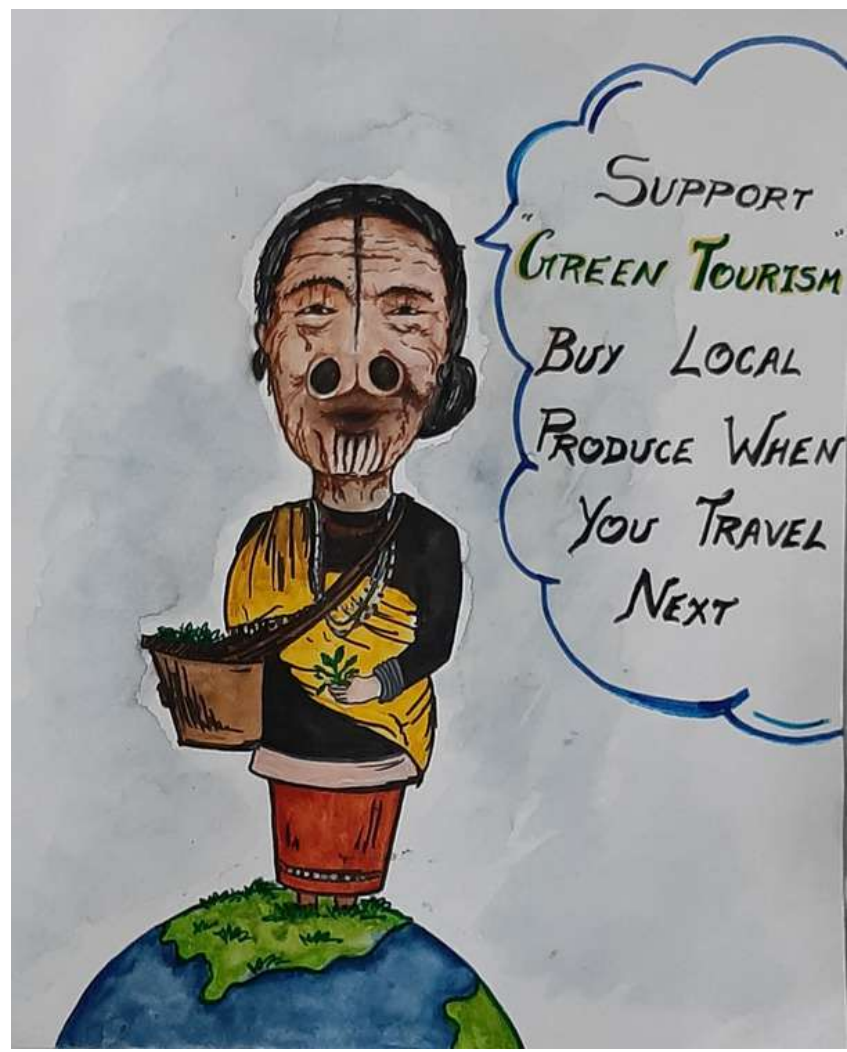 SUPPORT
"GREEN TOURISM"
BUY LOCAL
PRODUCE WHEN
YOU TRAVEL
NEXT